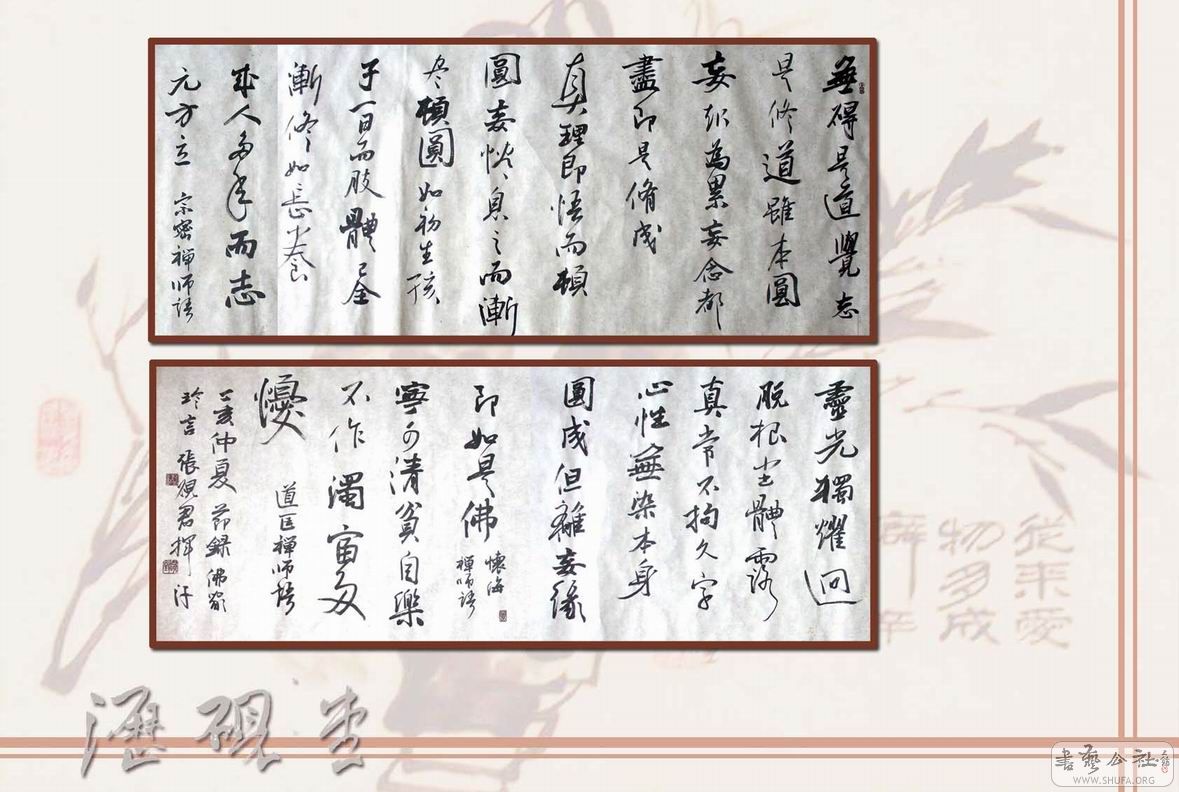 無碍是道覺忘
是修道雖本圓
妄起為累妄念都
盡即是脩成
真理即悟而頓
圓妄情息之而漸
盡頓圓如初生孩
子一日而肢體已全
漸修如長養
成人多年而志
方立 宗密禪師語
靈光獨耀迥
脫根尘體露
真常不拘文字
心性無染本身
圓成但離妄緣
即如是佛
懷海
禪師語
寧可清貧自樂
不作濁富多
憂 道匡禪師語
丁亥仲夏節錄佛家
珍言 張硯君揮汗
從來愛
物多成
癖 辛
硯堂
書藝公社
WWW.SHUFA.ORG